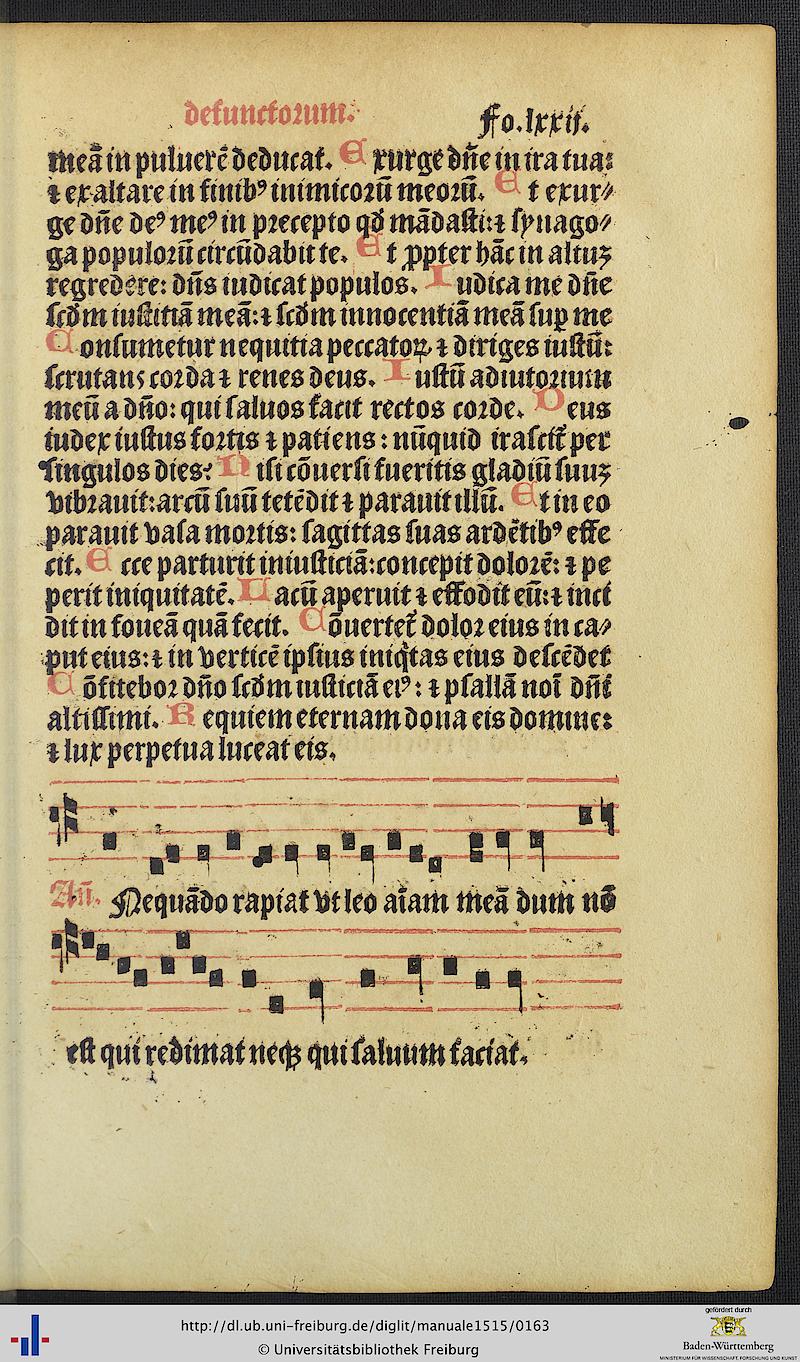 defunctorum.
Fo.lxxii.
meā in puluerē deducat. Exurge dn̄e in ira tua:
⁊ exaltare in finibꝰ inimicorū meorū. Et exur⸗
ge dn̄e deꝰ meꝰ in precepto qd̄ mādasti:⁊ synago⸗
ga populorū circūdabit te. Et ꝓpter hāc in altuꝫ
regredere: dn̄s iudicat populos. Iudica me dn̄e
scd̄m iustitiā meā:⁊ scd̄m innocentiā meā suꝑ me
Consumetur nequitia peccatoꝝ ⁊ diriges iustū:
scrutans corda ⁊ renes deus. Iustū adiutorium
meū a dn̄o: qui saluos facit rectos corde. Deus
iudex iustus fortis ⁊ patiens: nūquid irascit᷑ per
singulos dies: Nisi cōuersi fueritis gladiū suuꝫ
vibrauit:arcū suū tetēdit ⁊ parauit illū. Et in eo
parauit vasa mortis: sagittas suas ardētibꝰ effe
cit. Ecce parturit iniusticiā:concepit dolorē: ⁊ pe
perit iniquitatē. Lacū aperuit ⁊ effodit eū:⁊ inci
dit in foueā quā fecit. Cōuertet᷑ dolor eius in ca⸗
put eius:⁊ in verticē ipsius iniq̇tas eius descēdet
Cōfitebor dn̄o scd̄m iusticiā eiꝰ: ⁊ psallā noi̅ dn̄i
altissimi. Requiem eternam dona eis domine:
⁊ lux perpetua luceat eis.
An̄. Nequādo rapiat vt leo ai̅am meā dum nō
est qui redimat neqꝫ qui saluum faciat.
http://dl.ub.uni-freiburg.de/diglit/manuale1515/0163
© Universitätsbibliothek Freiburg
gefördert durch
Baden-Württemberg
MINISTERIUM FÜR WISSENSCHAFT, FORSCHUNG UND KUNST